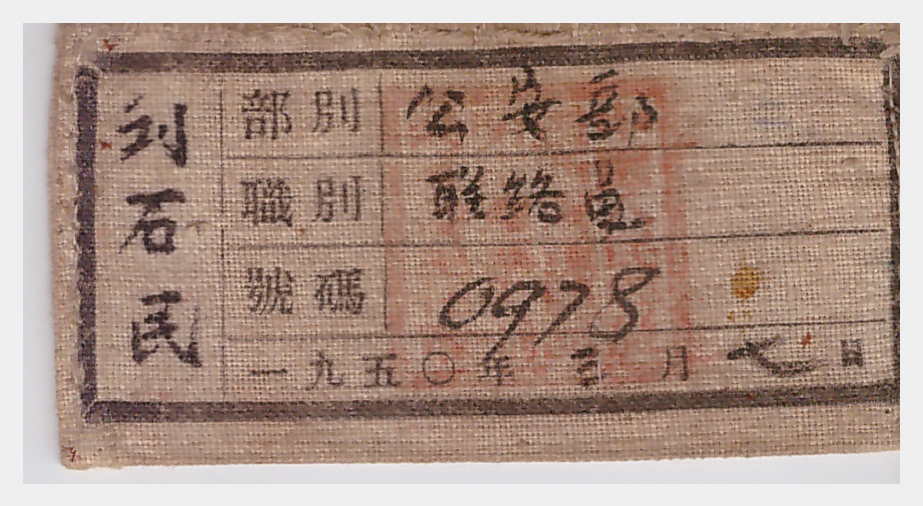 刘石民
部別 公安部
職別 联络員
號碼 0978
一九五〇年三月七日